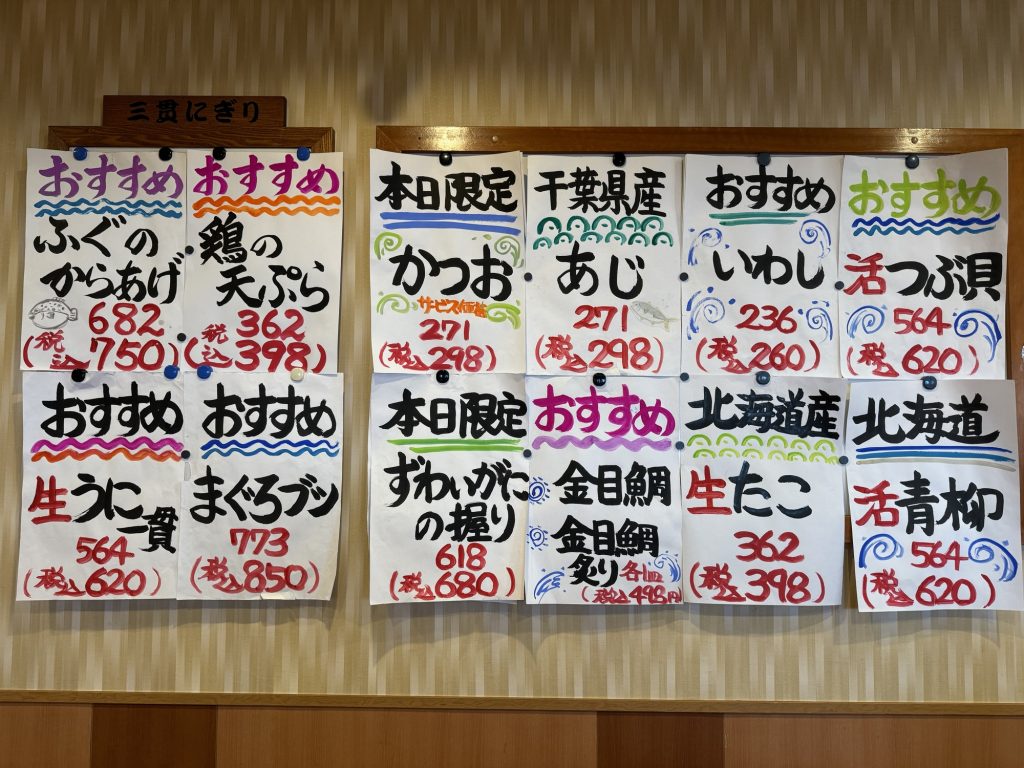 三貫にぎり
おすすめ
ふぐの
からあげ
682
(税込750)
おすすめ
鶏の
天ぷら
362
(税込398)
本日限定
かつお
サービス価格
271
(税込298)
千葉県産
あじ
271
(税込298)
おすすめ
いわし
236
(税込260)
おすすめ
活つぶ貝
564
(税込620)
おすすめ
生うに
一貫
564
(税込620)
おすすめ
まぐろブツ
773
(税込850)
本日限定
ずわいがに
の握り
618
(税込680)
おすすめ
金目鯛
金目鯛
炙り各皿
(税込498円)
北海道産
生たこ
362
(税込398)
北海道
活青柳
564
(税込620)